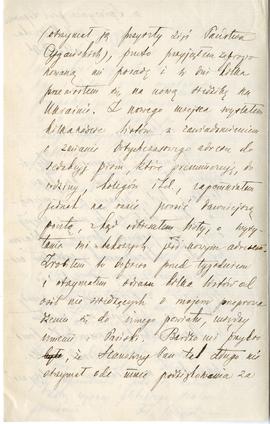 otrzymał ją przyszły zięć Państwa
), przeto przyjąłem zapropo-
nowaną mi posadę i w dni kilka
przeniosłem się na nową siedzibę na
Ukrainie. Z nowego miejsca wysłałem
kilkanaście listów z zawiadomieniem
o zmianie dotychczasowego adresu do
redakcyj pism, które prenumeruję, do
rodziny, kolegów i t.d., zapomniałem
jednak na razie prosić dawniejszą
pocztę, skąd odbierałem listy, o wysy-
łanie mi takowych pod nowym adresem.
Zrobiłem to dopiero przed tygodniem
i otrzymałem odrazu kilka listów od
osób nie wiedzących o mojem przepro-
dzeniu się do innego powiatu, między
innemi i Pański. Bardzo mi przykro
, że Szanowny Pan tak długo nie
otrzymał ode mnie podziękowania za